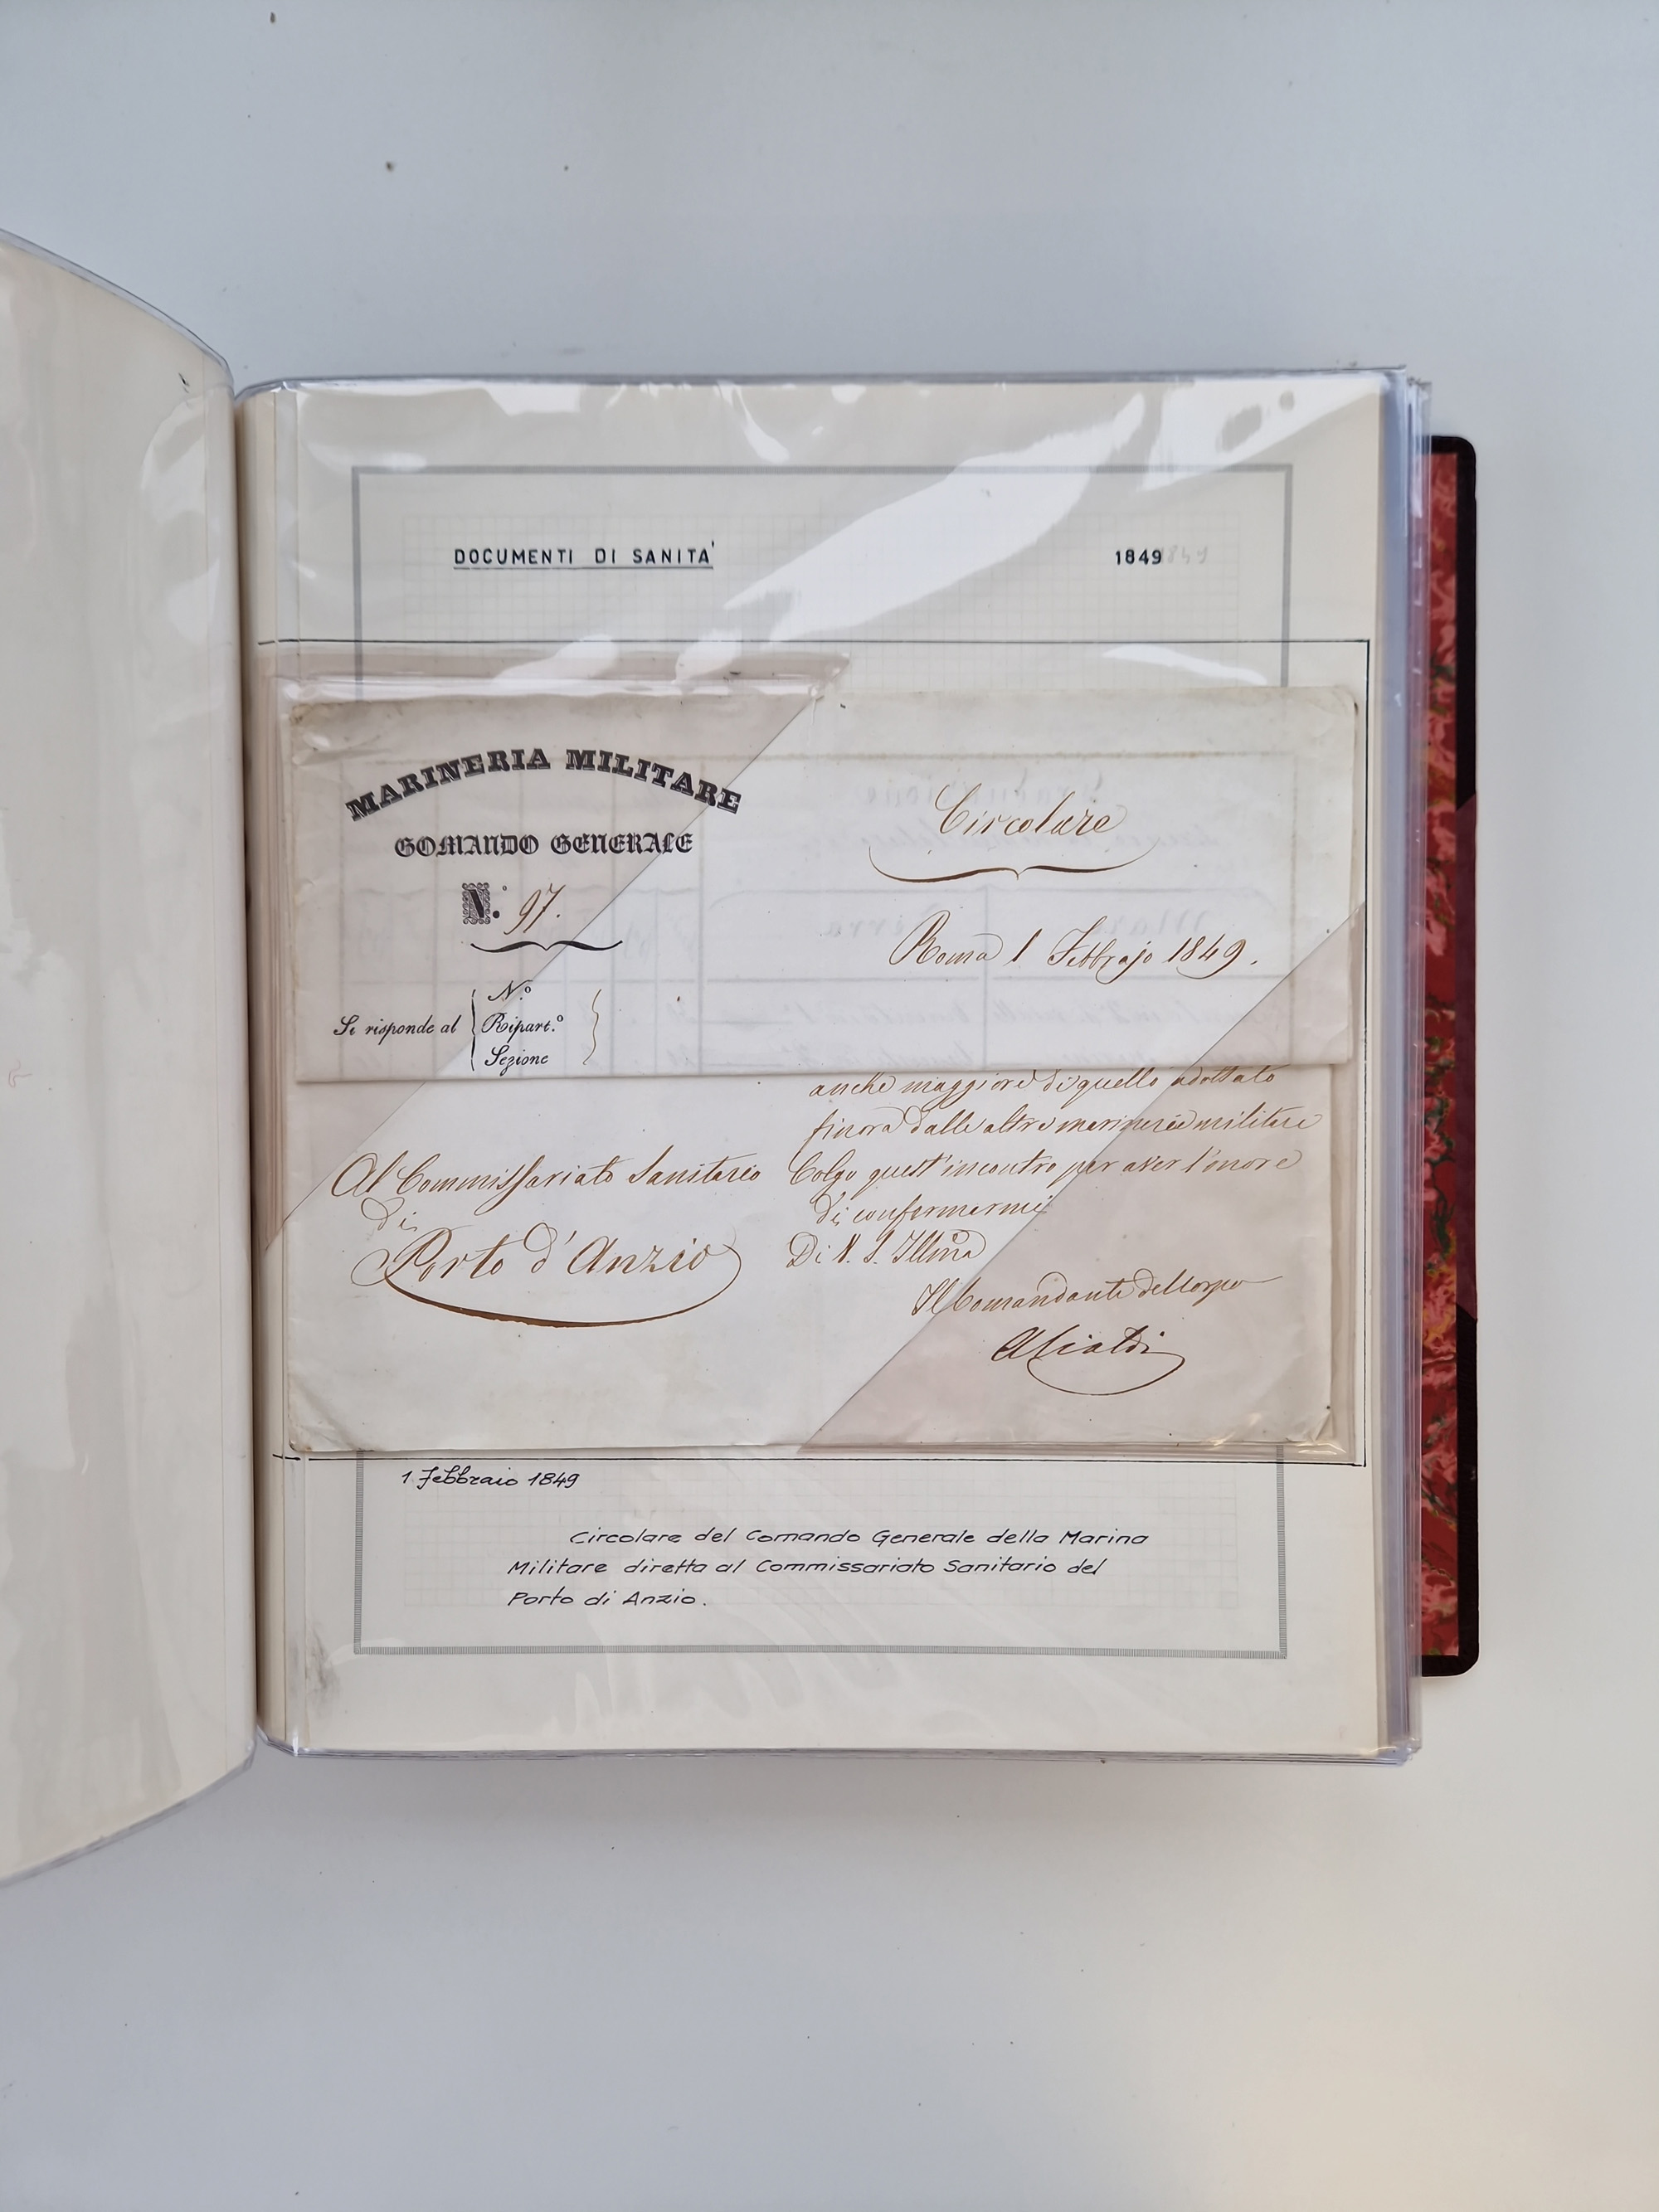 DOCUMENTI DI SANITA'
1849 1849
MARINERIA MILITARE
COMANDO GENERALE
N.° 97.
Si risponde al
N.°
Ripart.°
Sezione
Circolare
Roma 1 Febbrajo 1849.
anche maggiore di quello adottato
finora dalle altre marinerie militari
Colgo quest'incontro per aver l'onore
di confermarmi
Di V. S. Illma
Il Comandante del Corpo
A Cialdi
Al Commissariato Sanitario
di
Porto d'Anzio
1 Febbraio 1849
Circolare del Comando Generale della Marina
Militare diretta al Commissariato Sanitario del
Porto di Anzio.